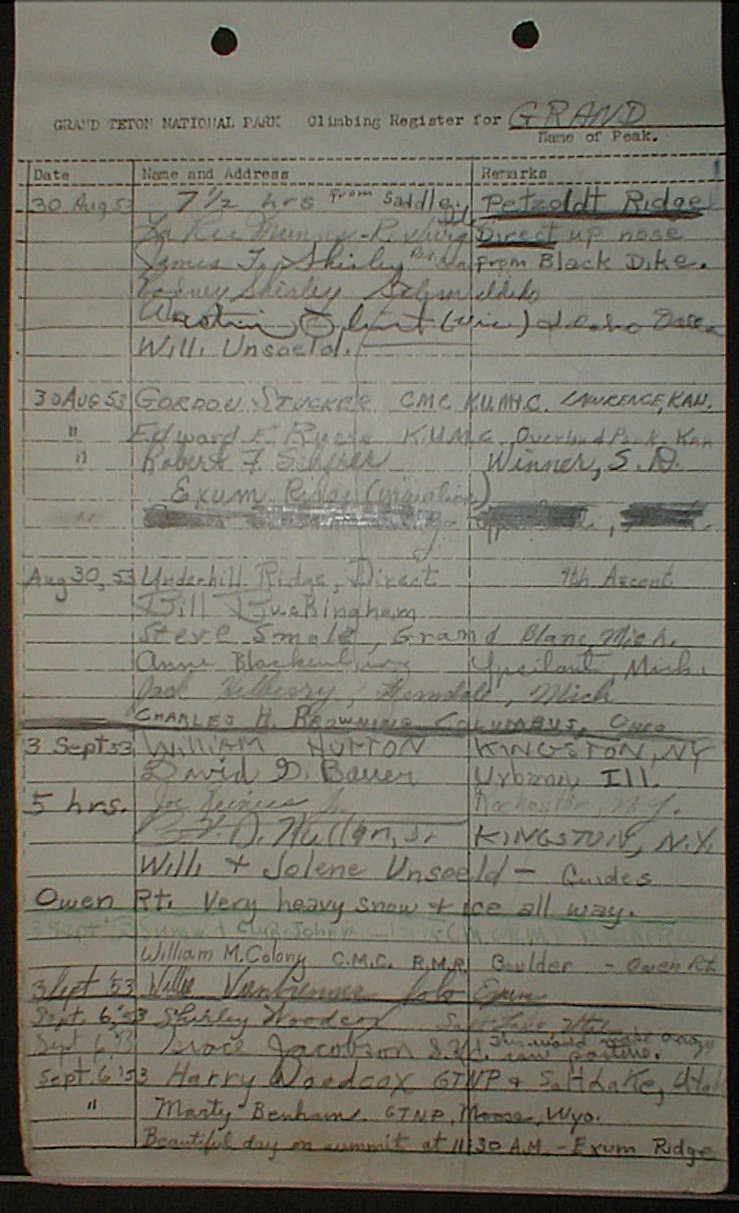 GRAND TETON NATIONAL PARK Climbing Register for GRAND
Name of Peak.
Date Name and Address Remarks
30 Aug 53 7 1/2 hrs from Saddle. Petzoldt Ridge
Direct up nose
James Shirley from Black Dike.
Rodney Shirley Idaho
Idaho
Willi Unsoeld.
30 AUG 53 GORDON STUCKER CMC K.U.M.C. LAWRENCE, KAN.
" Edward F. K.U.M.C. Overland Park. Kan
" Robert F. Winner, S.D.
Exum Ridge
"
Aug 30, 53 Underhill Ridge, Direct 9th Ascent
Bill Buckingham
Steve Smale, Grand Blanc Mich.
Anne Ypsilanti Mich.
Jack Ferndale, Mich
CHARLES H. BROWNING COLUMBUS, OHIO
3 Sept 53 WILLIAM HUFTON KINGSTON, NY
David G. Bauer Urbana, Ill.
5 hrs. Joe Rochester, N.Y.
D. Jr. KINGSTON, N.Y.
Willi + Jolene Unsoeld - Guides
Owen Rt. Very heavy snow + ice all way.
3 Sept
William M. Colony C.M.C. R.M.R. Boulder - Owen Rt.
3 Sept '53 Willie Exum
Sept. 6, '53 Shirley Woodcox Salt Lake Utah
Sept 6, '53 Grace Jacobson This would make
Sept. 6 '53 Harry Woodcox GTNP & Salt Lake, Utah
" Marty Benham. GTNP, Moose, Wyo.
Beautiful day on summit at 11:30 A.M. - Exum Ridge